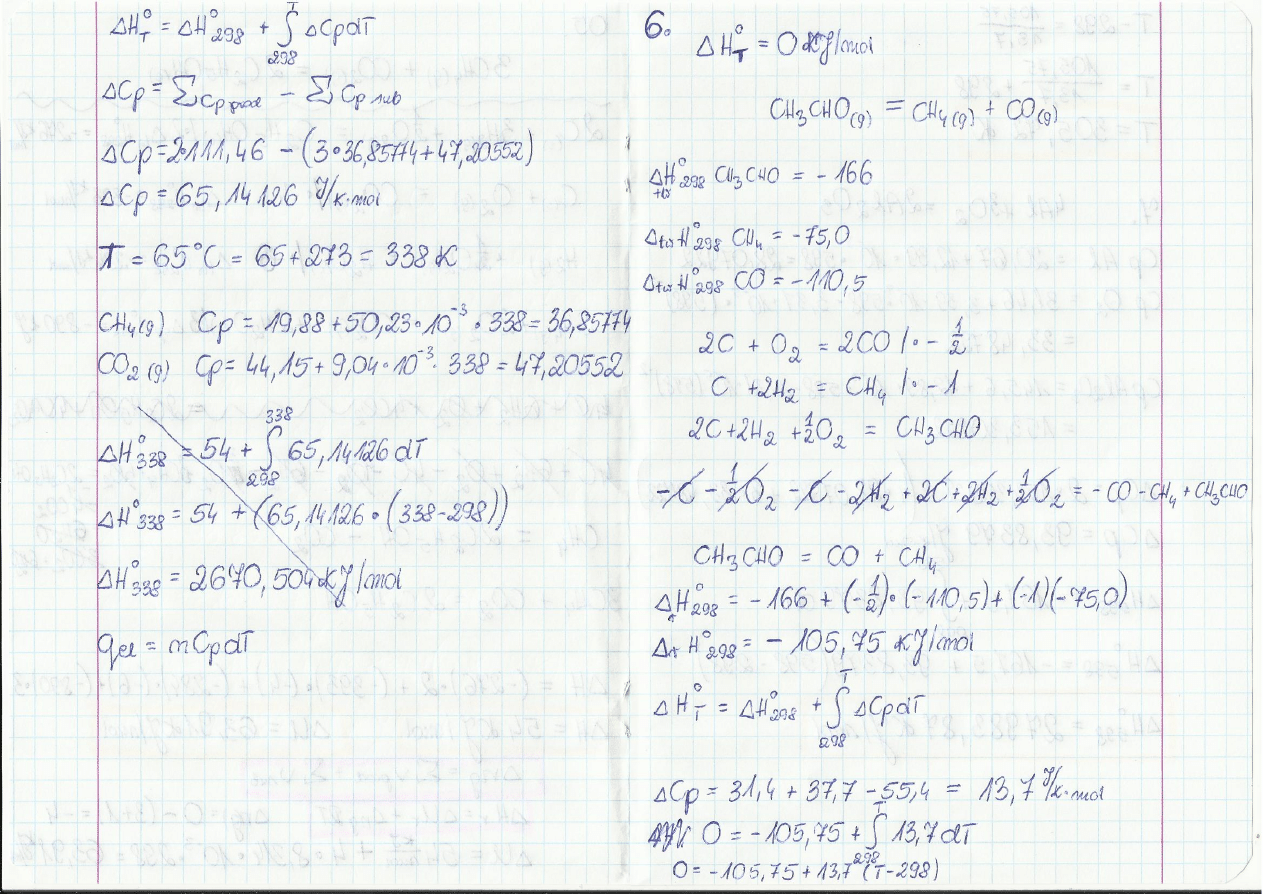 ΔH°T = ΔH°298 + ∫298^T ΔCp dT
ΔCp = ∑Cp prod − ∑ Cp sub
ΔCp = 2·111,46 − (3·36,85774+47,20552)
ΔCp = 65,14126 J/K·mol
T = 65°C = 65+273 = 338 K
CH4(g) Cp = 19,88+50,23·10⁻³·338 = 36,85774
CO2(g) Cp = 44,15+9,04·10⁻³·338 = 47,20552
ΔH°338 = 54 + ∫298^338 65,14126 dT
ΔH°338 = 54 + (65,14126·(338-298))
ΔH°338 = 2670,504 KJ/mol
qel = mCpdT
6.
ΔH°T = 0 KJ/mol
CH3CHO(g) = CH4(g) + CO(g)
ΔtwH°298 CH3CHO = -166
ΔtwH°298 CH4 = -75,0
ΔtwH°298 CO = -110,5
2C + O2 = 2CO /·-1/2
C + 2H2 = CH4 /·-1
2C+2H2+1/2O2 = CH3CHO
-C - 1/2O2 - C - 2H2 + 2C+2H2+1/2O2 = -CO - CH4 + CH3CHO
CH3CHO = CO + CH4
ΔrH°298 = -166 + (-1/2)·(-110,5) + (-1)(-75,0)
ΔrH°298 = -105,75 KJ/mol
ΔH°T = ΔH°298 + ∫298^T ΔCpdT
ΔCp = 31,4 + 37,7 - 55,4 = 13,7 J/K·mol
0 = -105,75 + ∫298^T 13,7 dT
0 = -105,75 + 13,7 (T-298)